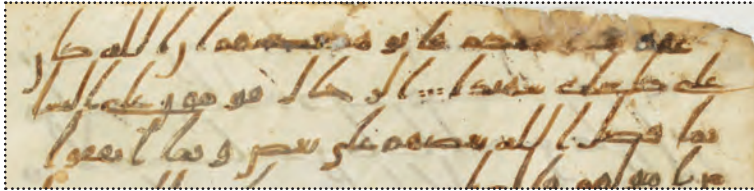 عقدت ايمنكم فاتوهم نصيبهم ان الله كان
على كل شى شهيدا الرجل قومون على النسا
بما فضل الله بعضهم على بعض وبما انفقوا
من امولهم